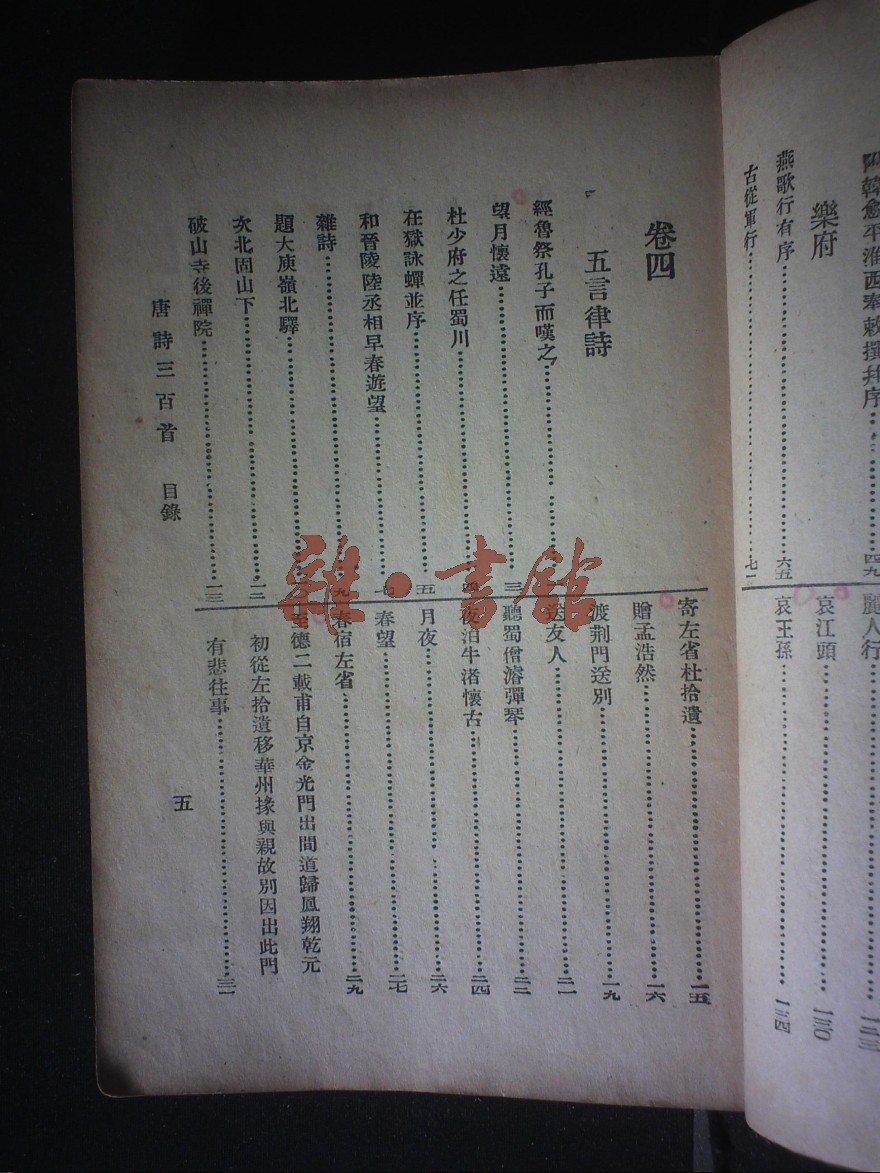 附韓愈平淮西奉敕撰并序……四九
樂府
燕歌行有序……六五
古從軍行……七二
麗人行……一二三
哀江頭……一三〇
哀王孫……一三四
卷四
五言律詩
經魯祭孔子而嘆之……
望月懷遠……三
杜少府之任蜀川……四
在獄詠蟬並序……五
和晉陵陸丞相早春遊望……七
雜詩……九
題大庾嶺北驛……
次北固山下……一二
破山寺後禪院……一三
寄左省杜拾遺……一五
贈孟浩然……一六
渡荆門送別……一九
送友人……二一
聽蜀僧濬彈琴……二二
夜泊牛渚懷古……二四
月夜……二六
春望……二七
春宿左省……二九
至德二載甫自京金光門出間道歸鳳翔乾元
初從左拾遺移華州掾與親故別因出此門
有悲往事……三一
唐詩三百首 目錄
五
雜·書館